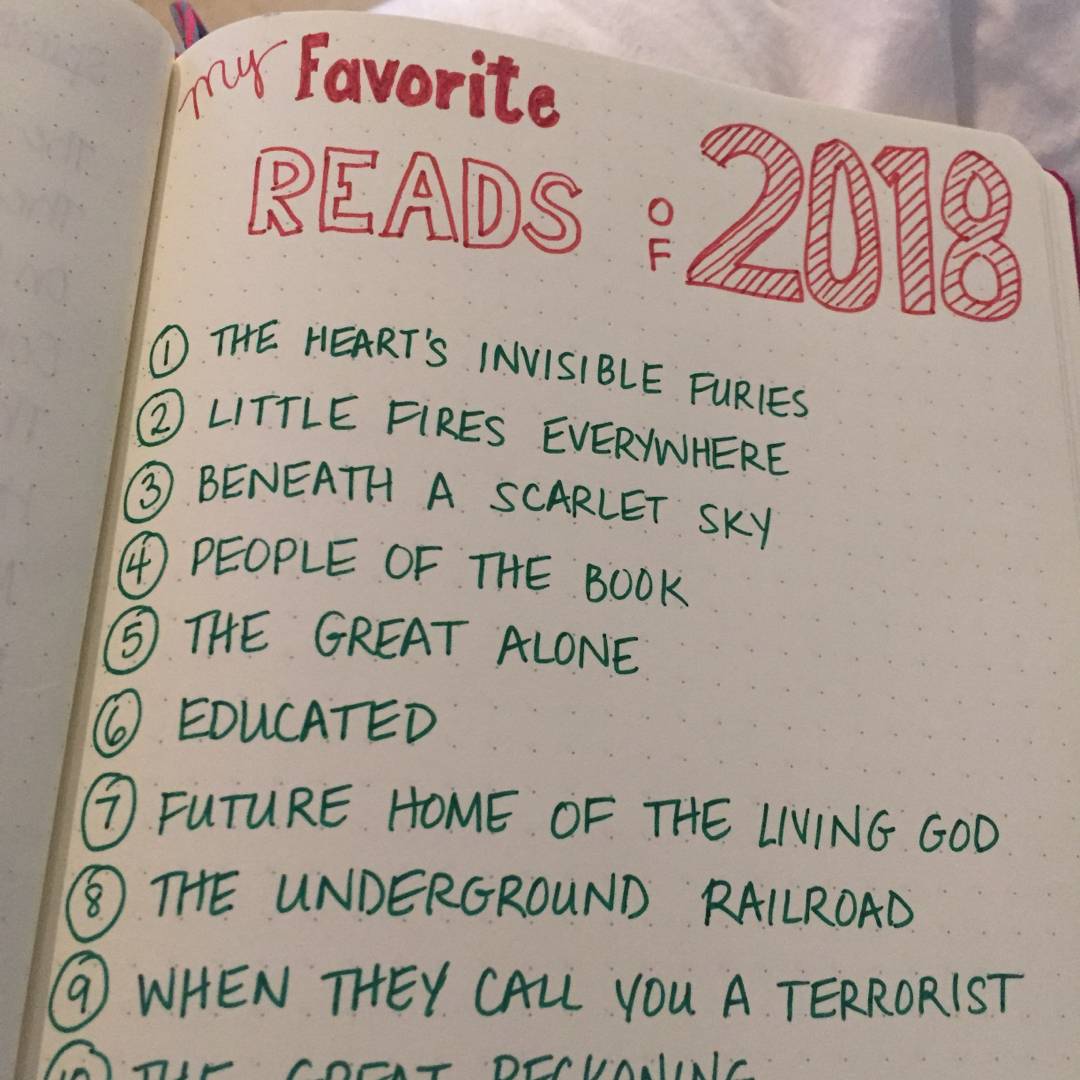 my Favorite
READS OF 2018
① THE HEART'S INVISIBLE FURIES
② LITTLE FIRES EVERYWHERE
③ BENEATH A SCARLET SKY
④ PEOPLE OF THE BOOK
⑤ THE GREAT ALONE
⑥ EDUCATED
⑦ FUTURE HOME OF THE LIVING GOD
⑧ THE UNDERGROUND RAILROAD
⑨ WHEN THEY CALL YOU A TERRORIST
⑩ THE GREAT RECKONING